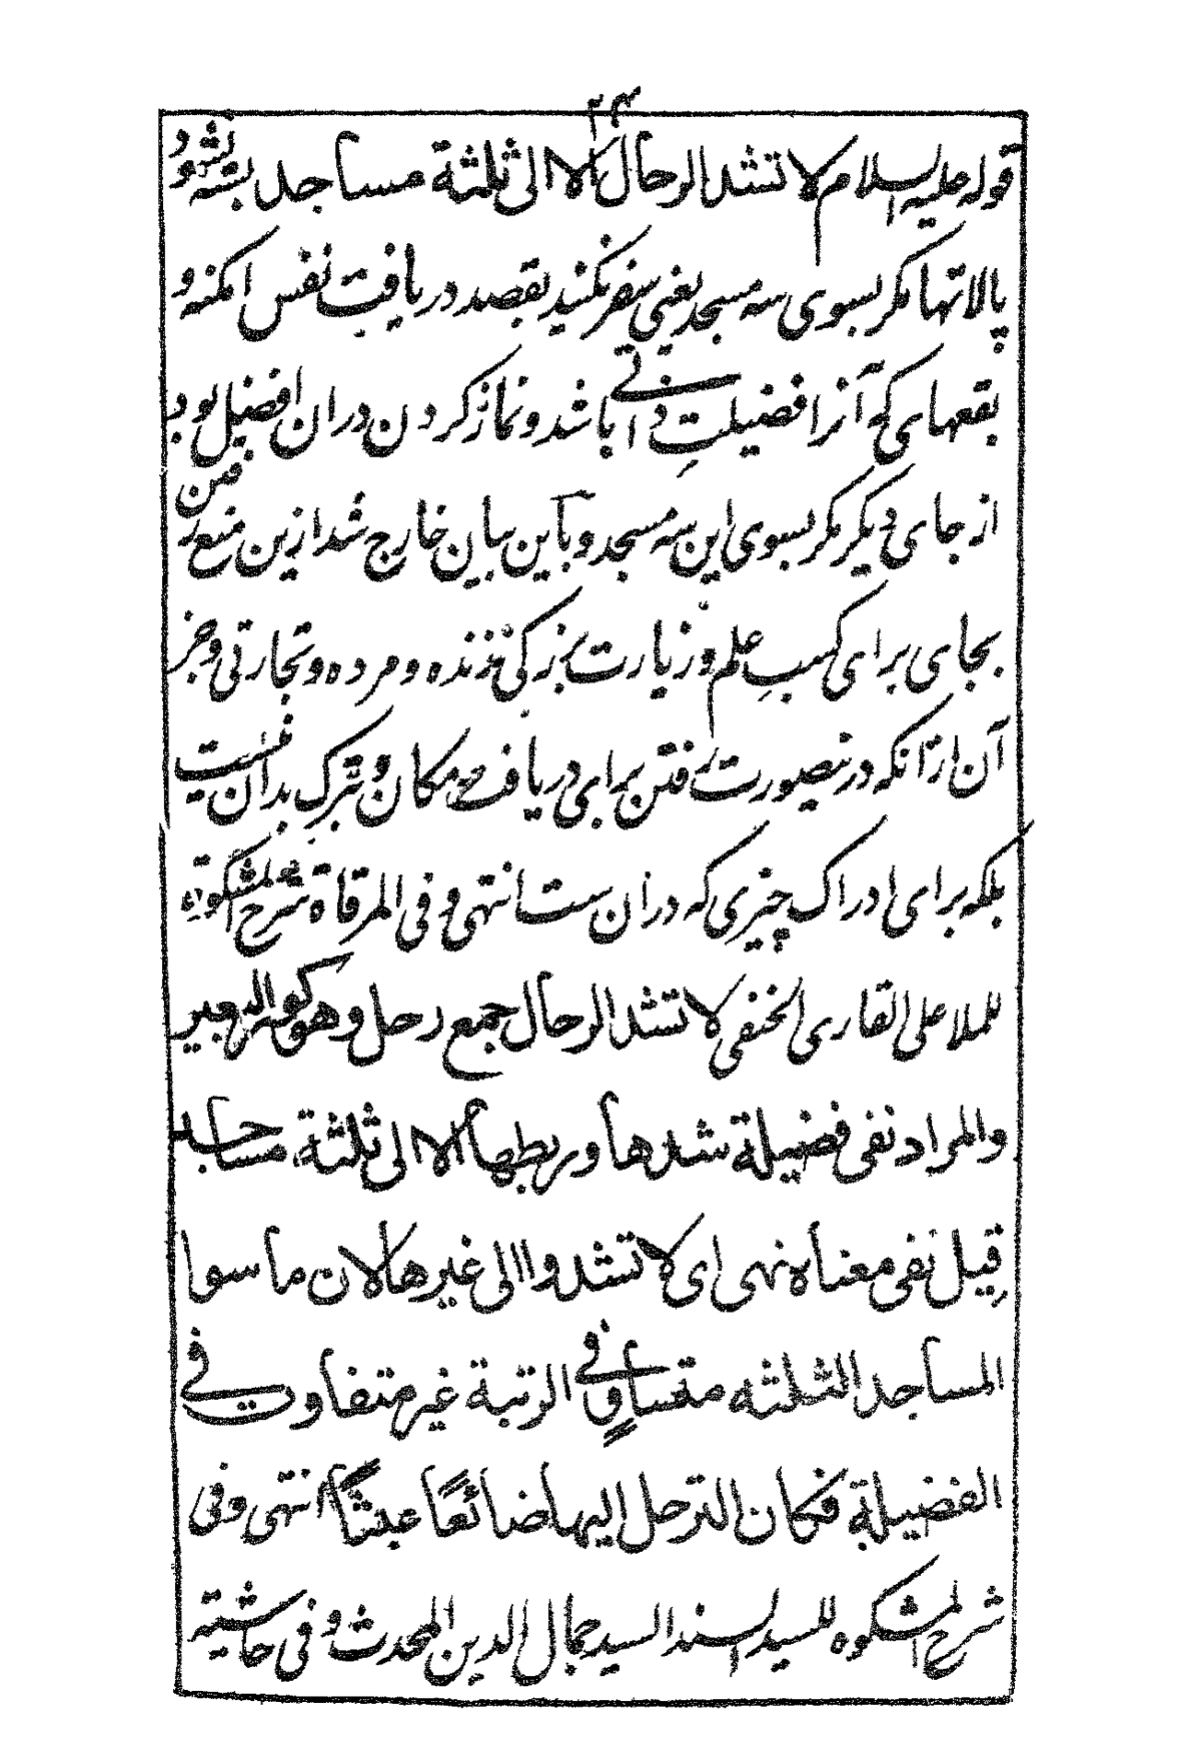 ۲۳
قوله علیه السلام لا تشد الرحال الا الی ثلثة مساجد بسته نشود
پالانها مکر بسوی سه مسجد یعنی سفر نکنید بقصد دریافت نفس امکنه و
بقعهای که آنرا فضیلتِ ذاتی باشد و نماز کردن دران افضل بود
از جای دیکر مکر بسوی این سه مسجد و باین بیان خارج شد ازین منع رفتن
بجای برای کسبِ علم و زیارت بزرکی زنده و مرده و تجارتی و جز
آن ازانکه درینصورت رفتن برای دریافت مکان و تبرک بدان نیست
بلکه برای ادراک چیزی که دران ست انتهی و فی المرقاة شرح المشکوة
للملا علی القاری الحنفی لا تشد الرحال جمع رحل و هو کور البعیر
والمراد نفی فضیلة شدها وربطها الا الی ثلثة مساجد
قیل نفی معناه نهی ای لا تشدوا الی غیرها لان ما سوا
المساجد الثلثه متساوٍ فی الرتبة غیر متفاوت فی
الفضیلة فکان الترحل الیها ضائعًا عبثًا انتهی و فی
شرح المشکوه للسید السند السید جمال الدین المحدث و فی حاشیته